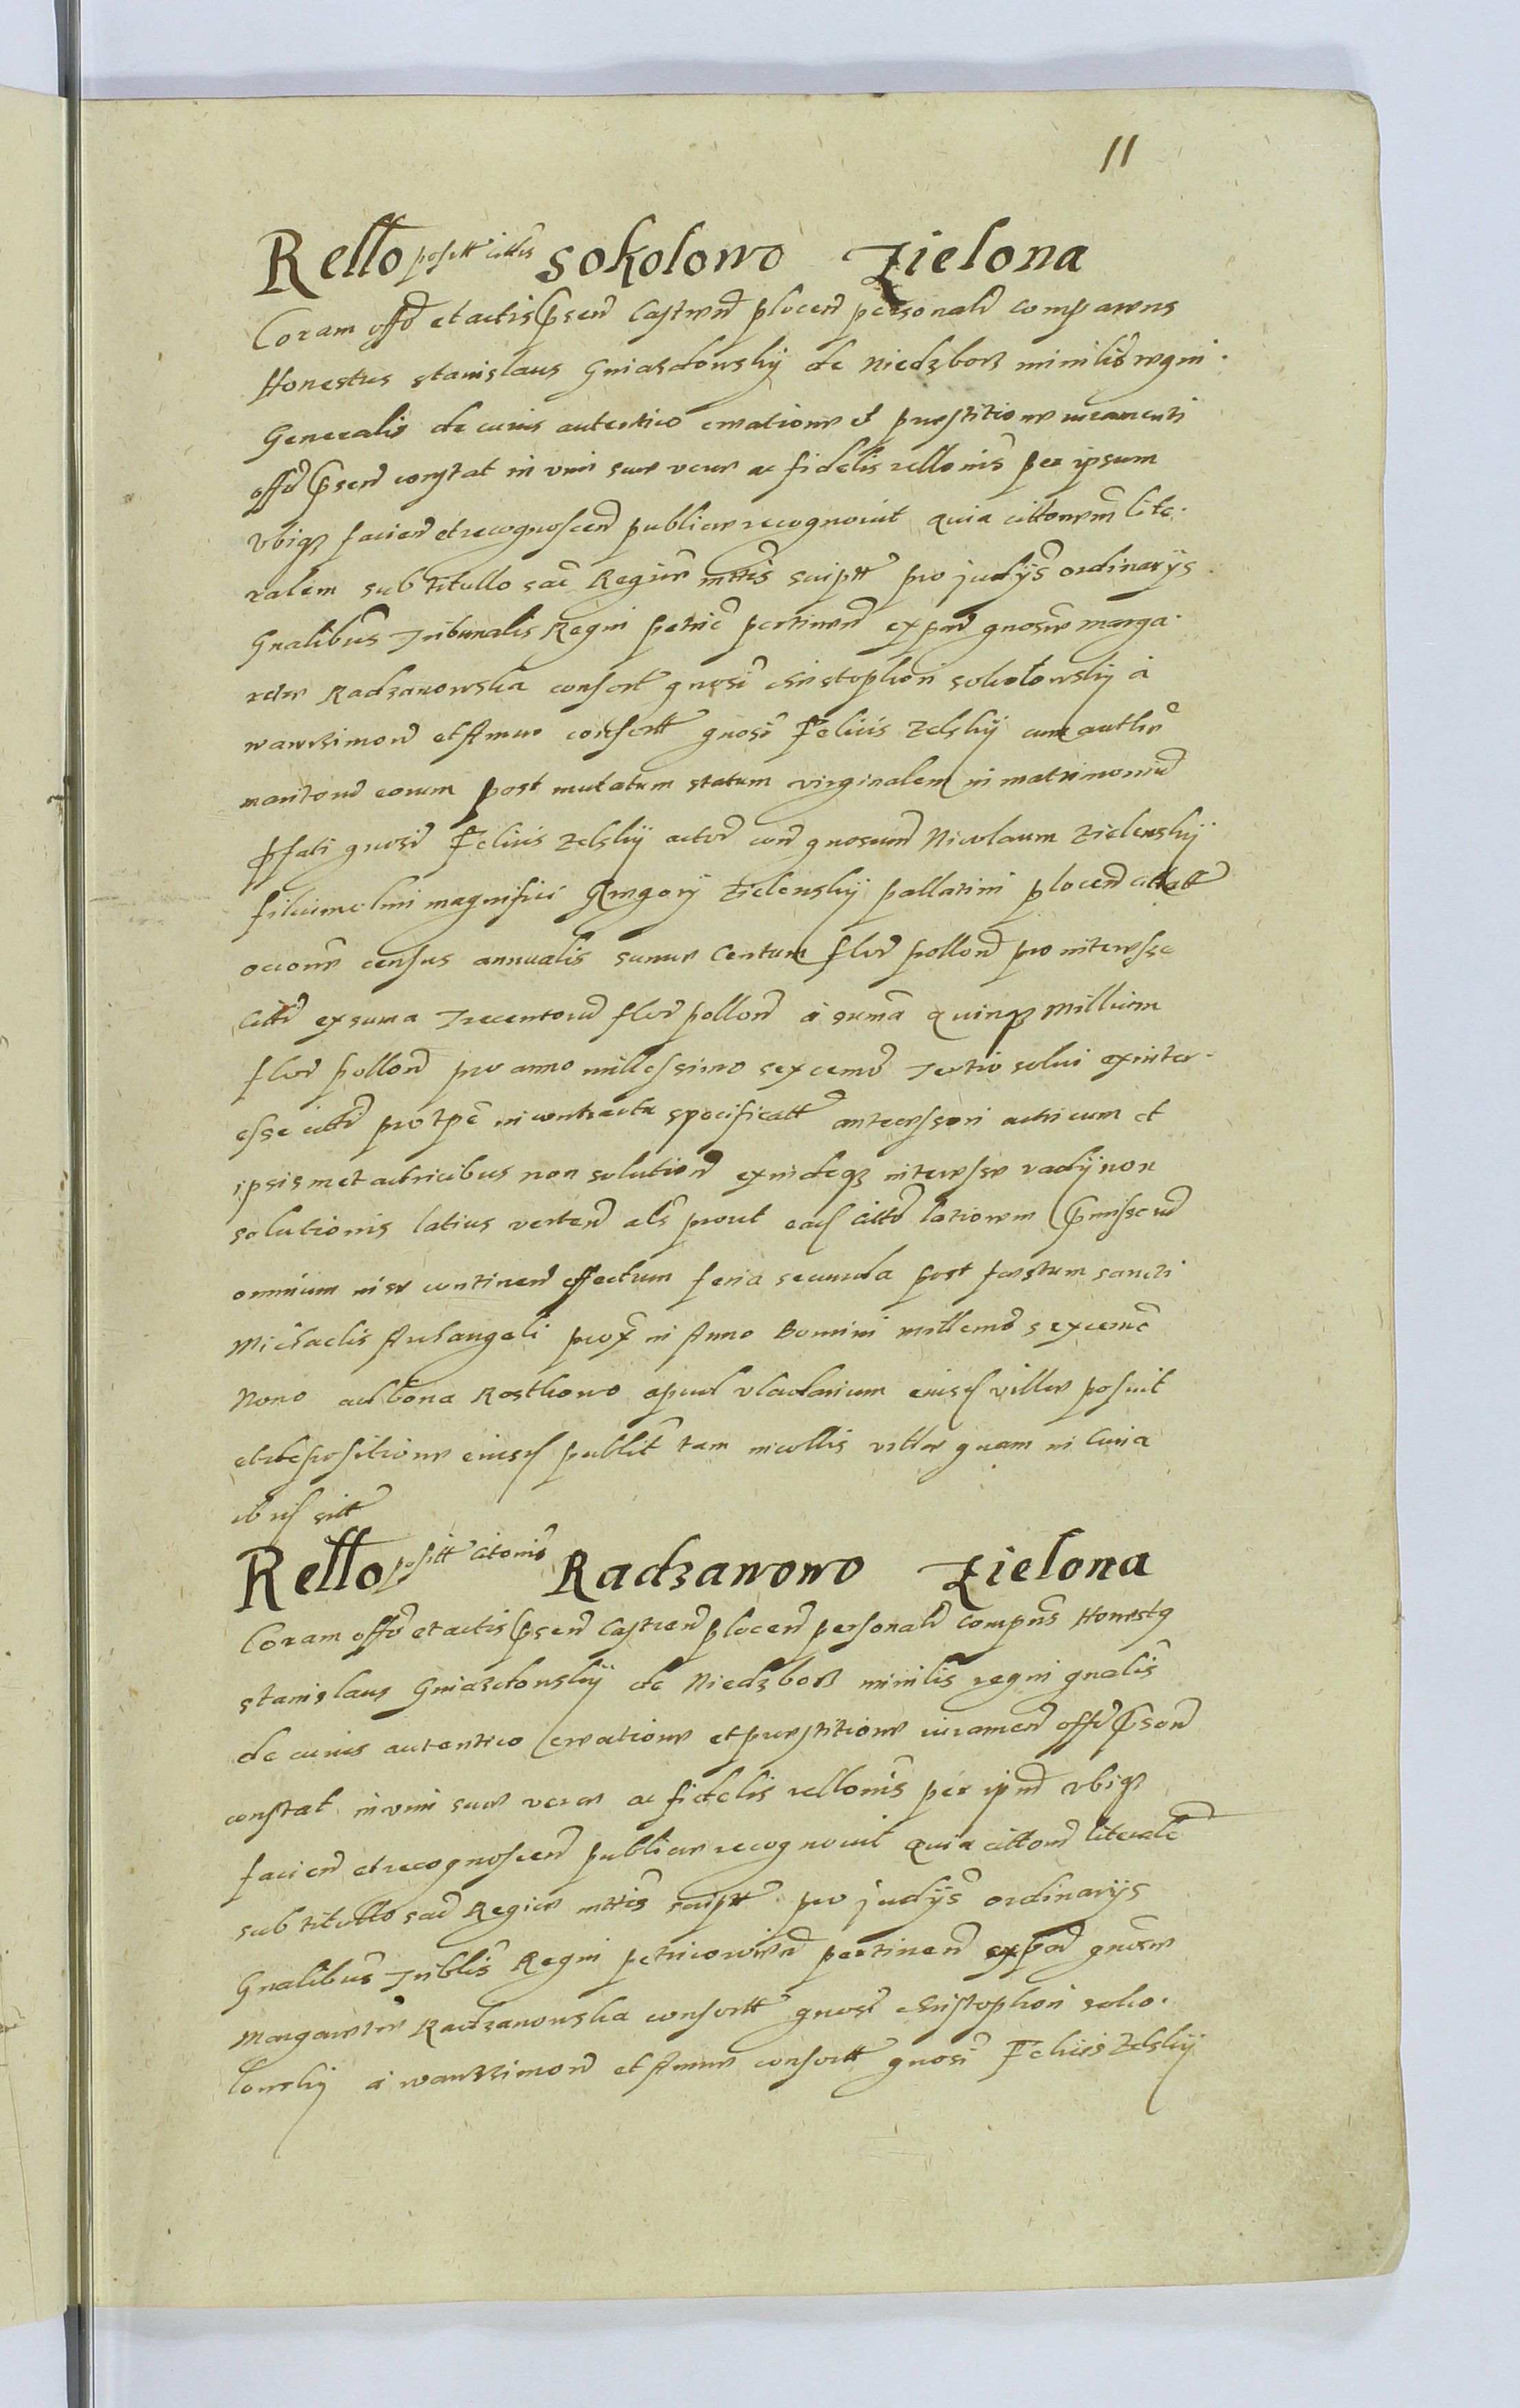 11
Rello positt cittis Sokolowo Zielona
Coram offo et actis psen Castren plocen personalr comparens
Honestus Stanislaus Gniazdowskij de Niedzborz minilis regni
Generalis de cuius autentico creatione et prestitione iuramenti
offo psen constat in vim sue vere ac fidelis rellonis per ipsum
vbiqz facien et recognoscen publice recognouit quia cittonem lite-
ralem sub titullo sac Regie mttis scriptt pro judijs ordinarijs
Gnalibus Tribunalis Regni petric pertinen ex par gnose marga-
rete Radzanowska consort gnosi christophori sokolowskij a
wawrzimow et Anne consortt gnosi Felicis Zelskij cum authe
maritorum earum post mutatum statum virginalem in matrimonium
pfati gnosi Felicis Zelskij actor con gnosum Nicolaum Zielenskij
filium olim magnifici Gregorij Zielenskij pallatini plocen citatt
ocione census annualis sume Centum flor pollon pro interesse
citti ex suma Trecentorum flor pollon a suma quinqz millium
flor pollon pro anno millessimo sexcenmo Tertio solui ex inter-
esse citti pro tpe in contractu specificatt antecessori actricum et
ipsismet actricibus non solution exindeqz interesse vadij non
solutionis latius verten als prout eads citto latiorem pmissorum
omnium in se continen effectum feria secunda post festum sancti
Michaelis Archangeli prox in Anno Domini millemo sexcenmo
Nono ad bona Rostkowo apud vladarium eiusd ville posuit
et de positione eiusd publit tam incollis ville quam in Curia
ibid sitt
Rello positt citonis Radzanowo Zielona
Coram offo et actis psen Castren plocen personalr compns Honestq
Stanislaus Gniazdowskij de Niedzborz minilis regni gnalis
de cuius autentico creatione et prestitione iuramen offo psen
constat in vim sue vere ac fidelis rellonis per ipm vbiqz
facien et recognoscen publice recognouit quia cittom literale
sub titullo sac Regie mttis scriptt pro judijs ordinarijs
Gnalibus Triblis Regni petricouien pertinen ex par gnose
Margarete Radzanowska consortt gnosi christophori soko-
lowskij a wawrzimow et Anne consortt gnosi Felicis Zelskij